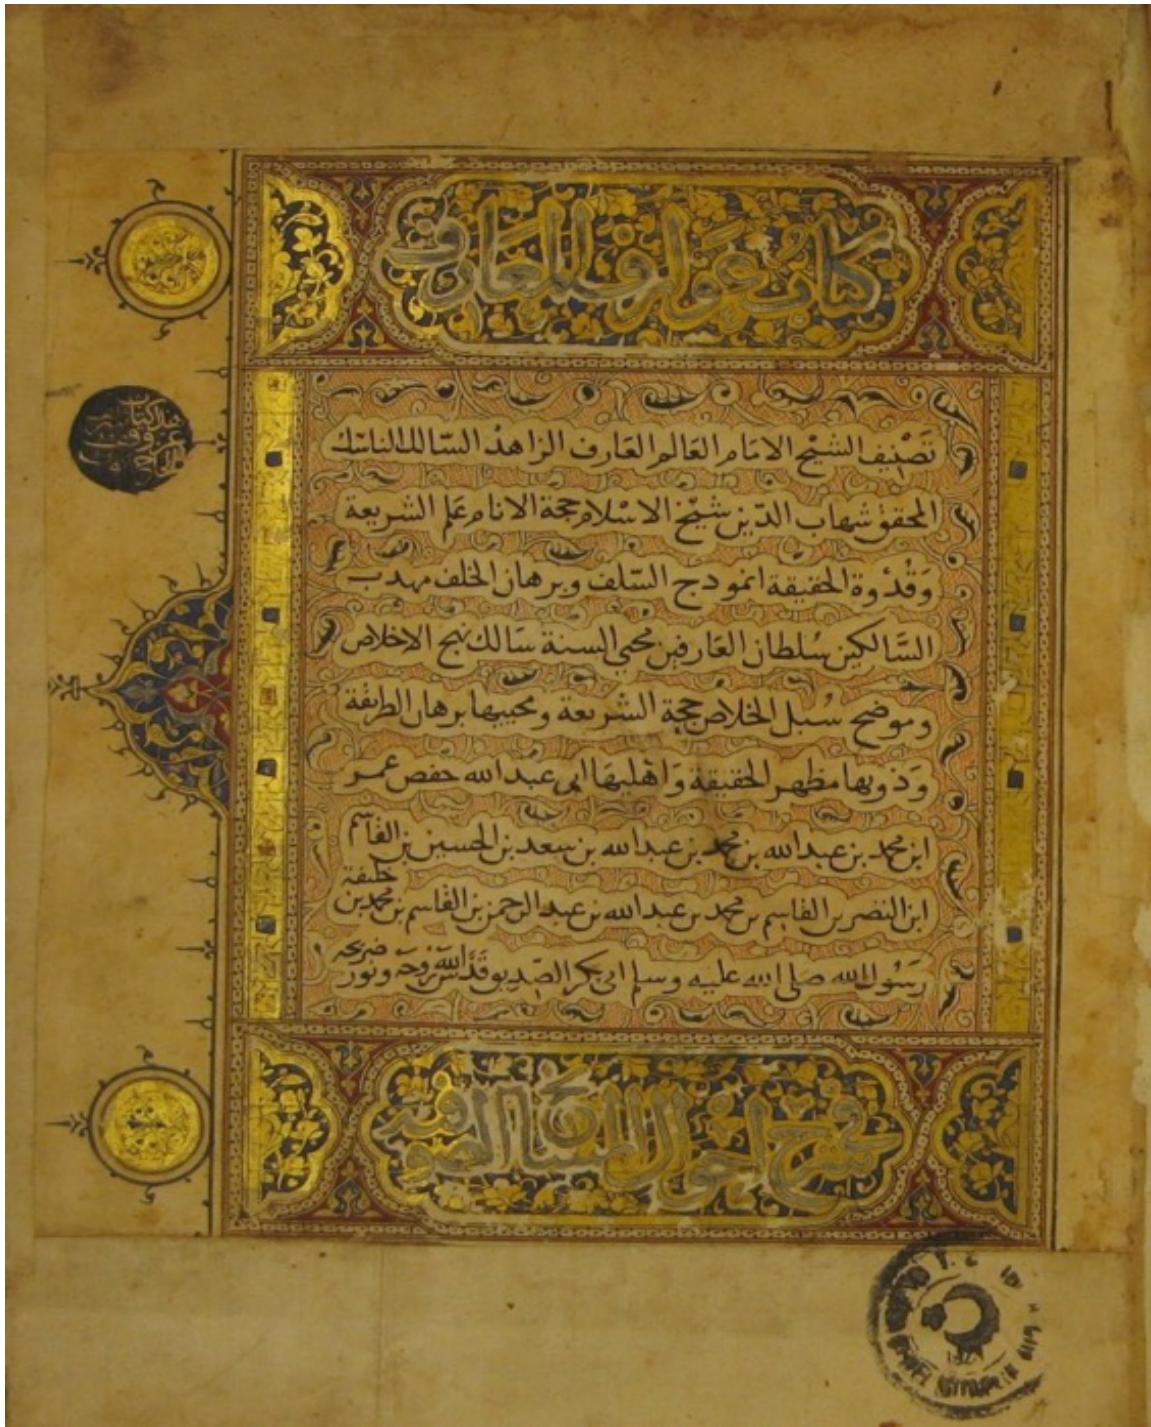 كتاب عوارف المعارف
تَصْنيف الشيْخ الامَام العَالم العَارف الزاهدْ السّالك الناسك
المحقق شهاب الدّين شيْخ الاسْلام حجة الانام عَلم الشريعة
وَقدْوة الحقيقة انموذج السّلف وبرهان الخلف مهدب
السَّالكين سُلطان العَارفين محيي السنة سَالك نهج الاخلاص
وموضح سُبل الخلاص حجة الشريعة ومحييها برهان الطريقة
وَذويها مظهر الحقيقة وَاهْليهَا ابى عبد الله حفص عمر
ابن محمد بن عبد الله بن محمد بن عبد الله بن سعد بن الحسين بن القاسم
ابن النصر بن القاسم بن محمد بن عبد الله بن عبد الرحمن بن القاسم بن محمد بن خليفة
رسُول الله صلى الله عليه وسلم ابى بكر الصّديق قدَّس الله روحَه ونور ضريحه
في شرح احوال المشايخ الصوفية